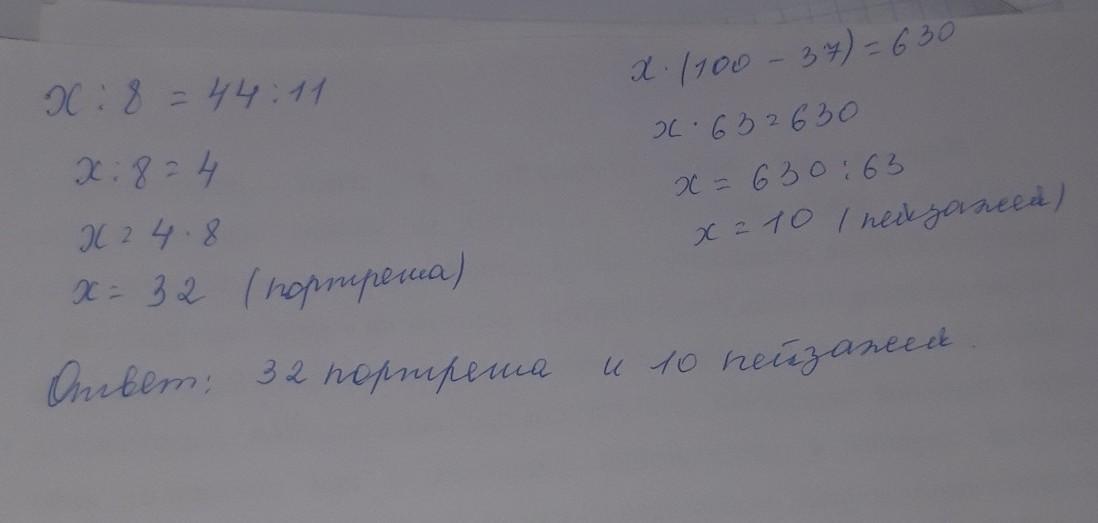 x : 8 = 44 : 11
x : 8 = 4
x = 4 · 8
x = 32 (портрета)
x · (100 - 37) = 630
x · 63 = 630
x = 630 : 63
x = 10 (пейзажей)
Ответ: 32 портрета и 10 пейзажей.